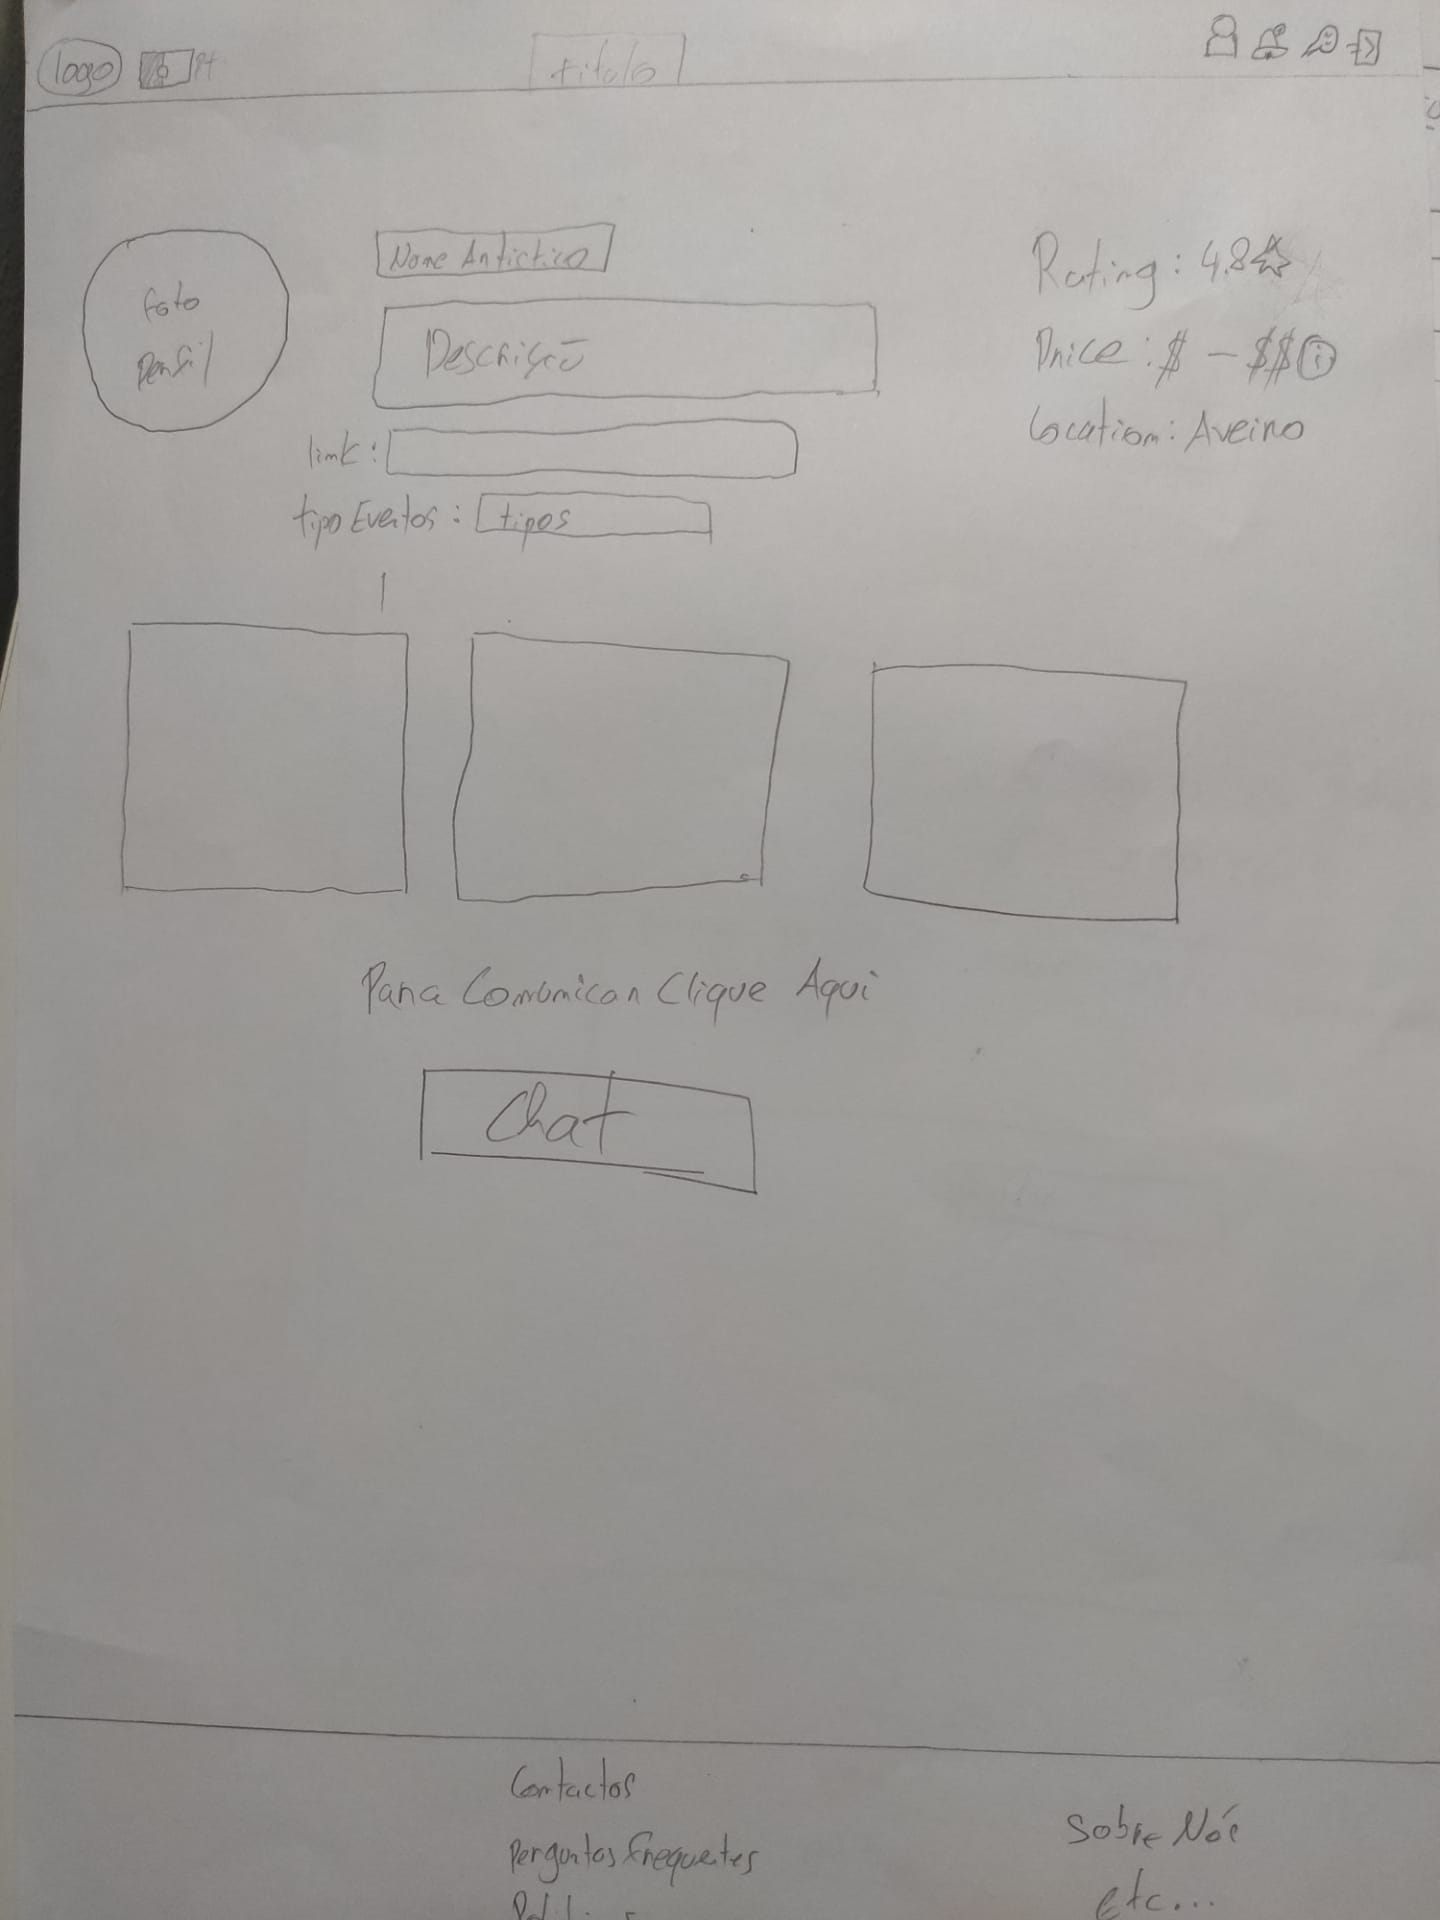 logo Pt
titulo
foto
perfil
Nome Antistico
Descrição
link:
tipo Eventos: tipos
Rating: 4.8
Price: $ - $$ i
Location: Aveiro
Para Comunicar Clique Aqui
Chat
Contactos
Perguntas frequentes
Sobre Nós
etc...